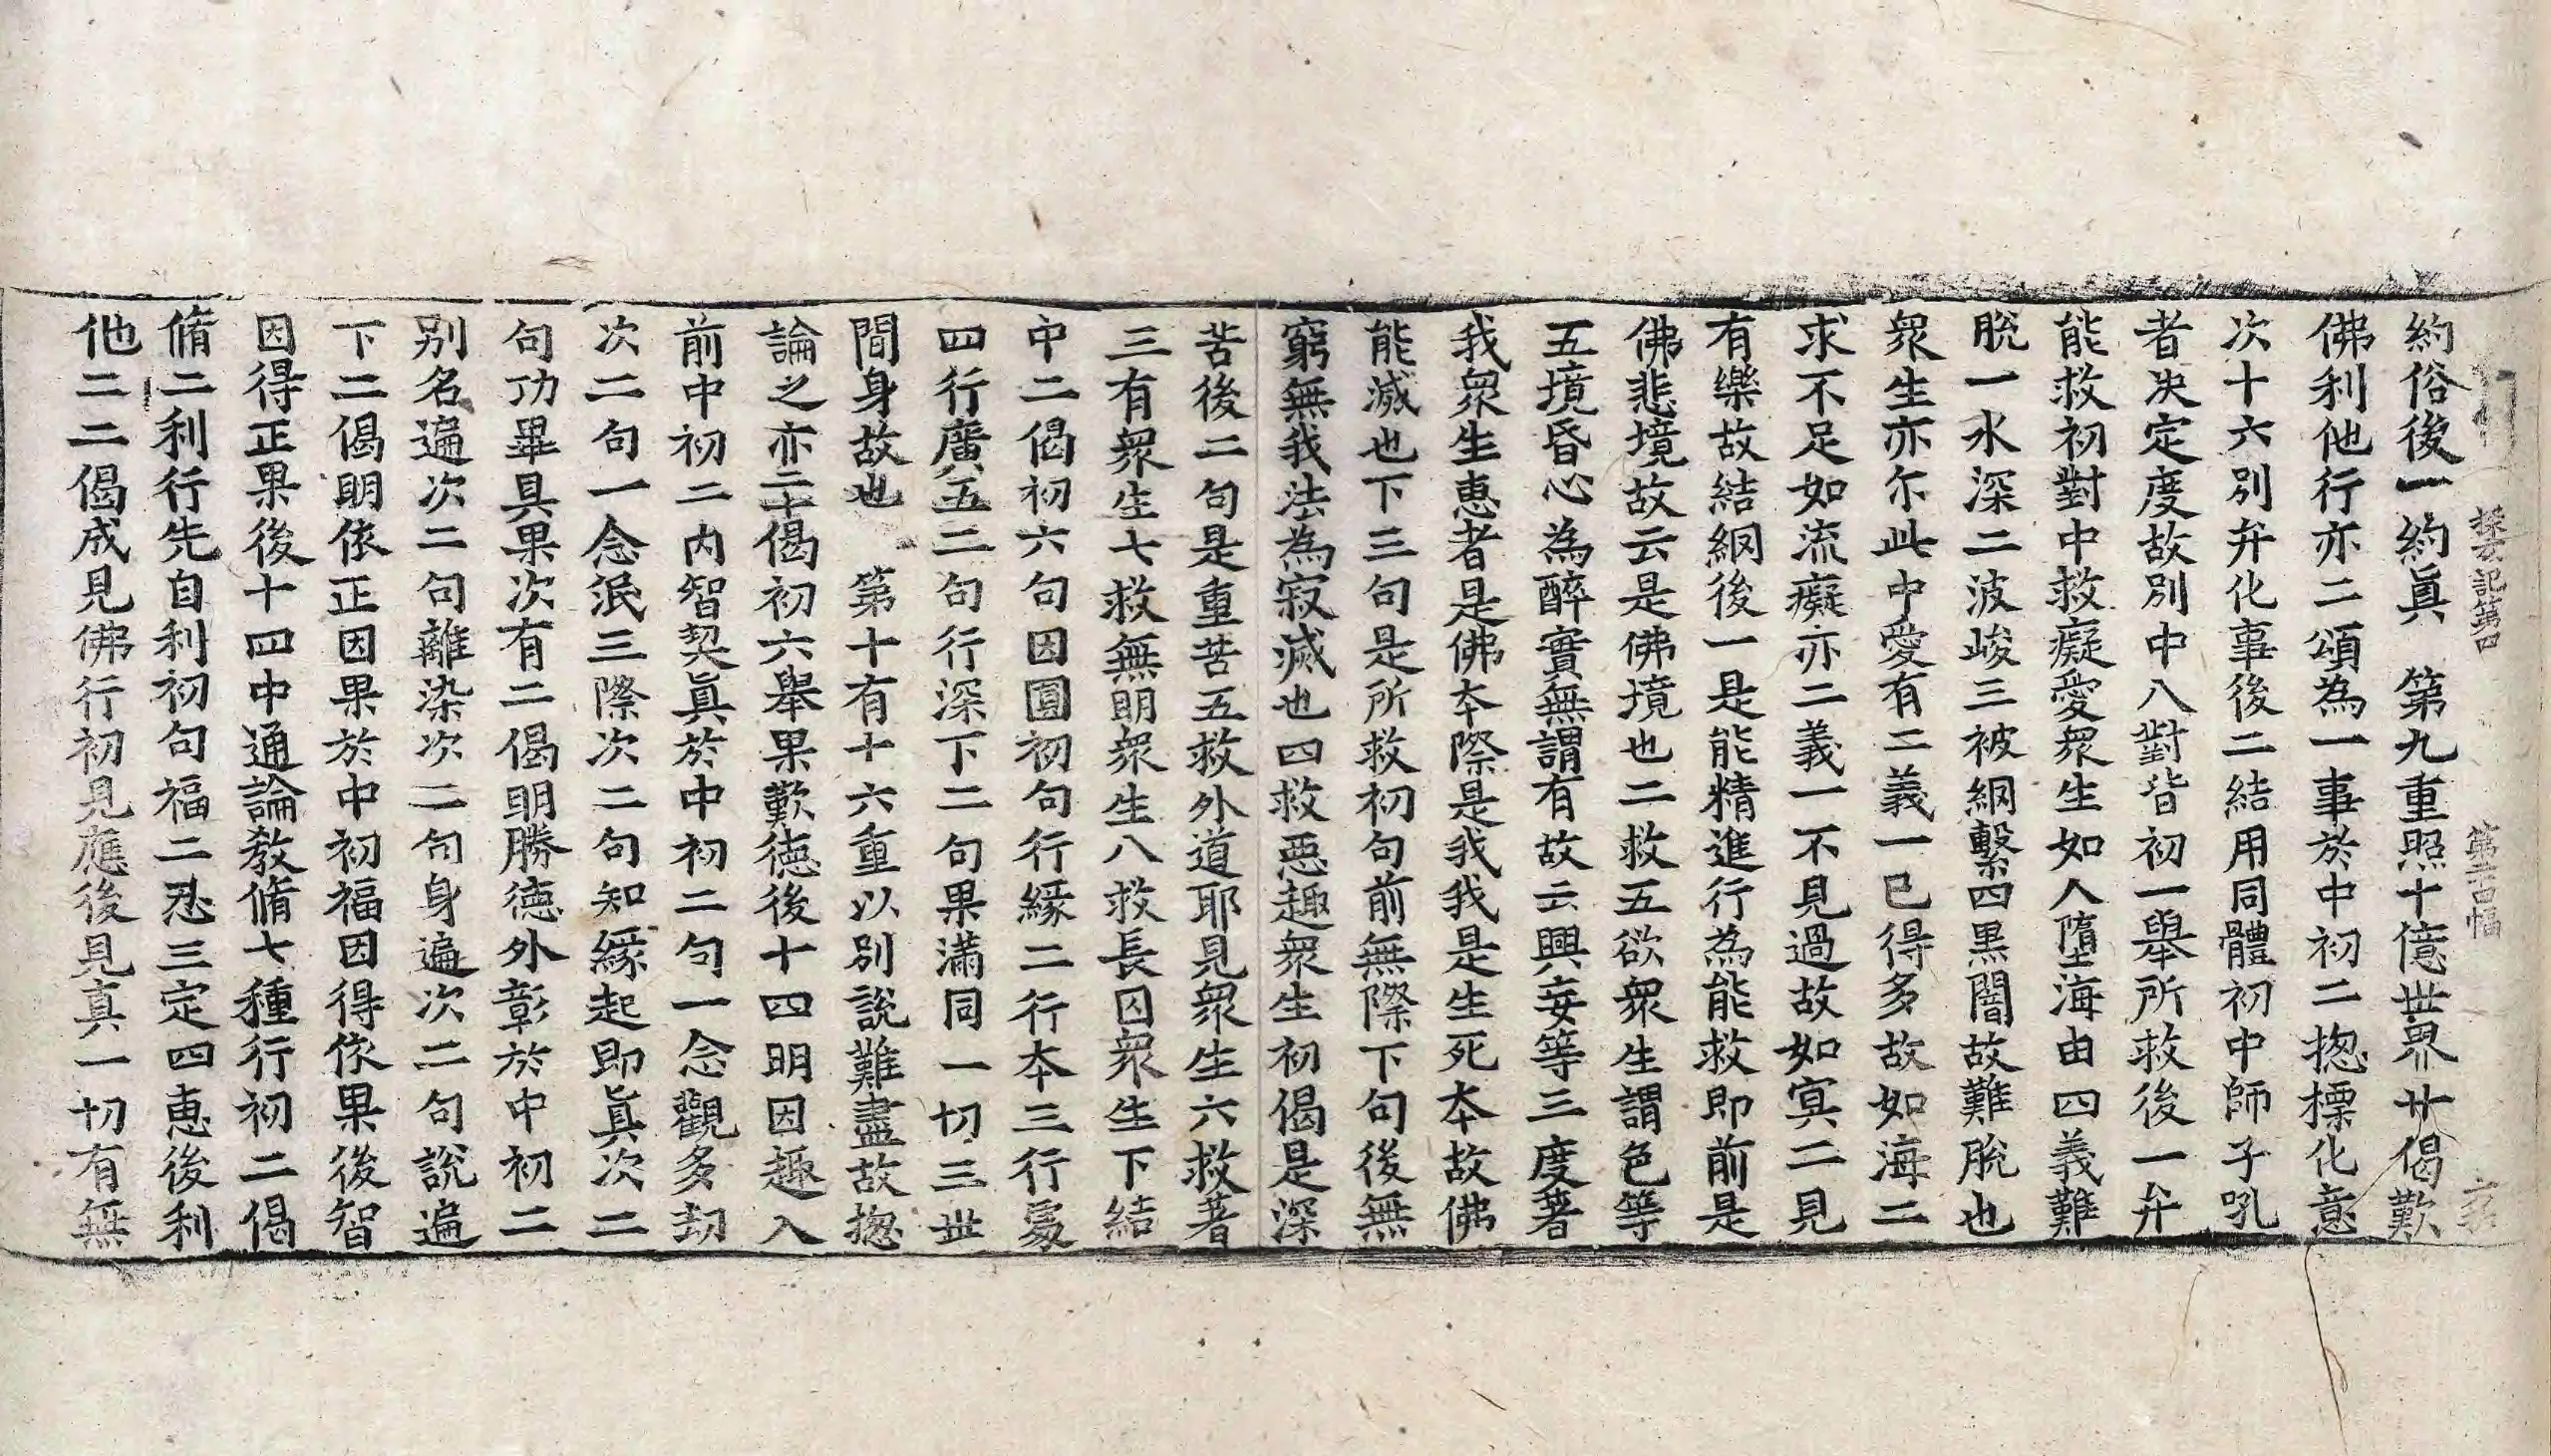 探玄記第四 第二十四幅
約俗後一約眞 第九重照十億世界廿偈歎
佛利他行亦二頌為一事於中初二揔標化意
次十六別弁化事後二結用同體初中師子吼
者决定度故別中八對皆初一舉所救後一弁
能救初對中救癡愛衆生如人墮海由四義難
脫一水深二波峻三被網繫四黒闇故難脫也
衆生亦尒此中愛有二義一已得多故如海二
求不足如流癡亦二義一不見過故如㝠二見
有樂故結網後一是能精進行為能救即前是
佛悲境故云是佛境也二救五欲衆生謂色等
五境昏心為醉實無謂有故云興妄等三度著
我衆生惠者是佛本際是我我是生死本故佛
能滅也下三句是所救初句前無際下句後無
窮無我法為寂滅也四救惡趣衆生初偈是深
苦後二句是重苦五救外道耶見衆生六救著
三有衆生七救無明衆生八救長囚衆生下結
中二偈初六句因圓初句行緣二行本三行處
四行廣五二句行深下二句果滿同一切三世
間身故也 第十有十六重以別說難盡故揔
論之亦二十偈初六舉果歎德後十四明因趣入
前中初二內智契眞於中初二句一念觀多劫
次二句一念泯三際次二句知緣起即眞次二
句功畢具果次有二偈明勝德外彰於中初二
別名遍次二句離染次二句身遍次二句說遍
下二偈明依正因果於中初福因得依果後智
因得正果後十四中通論教脩七種行初二偈
脩二利行先自利初句福二忍三定四惠後利
他二二偈成見佛行初見應後見真一切有無